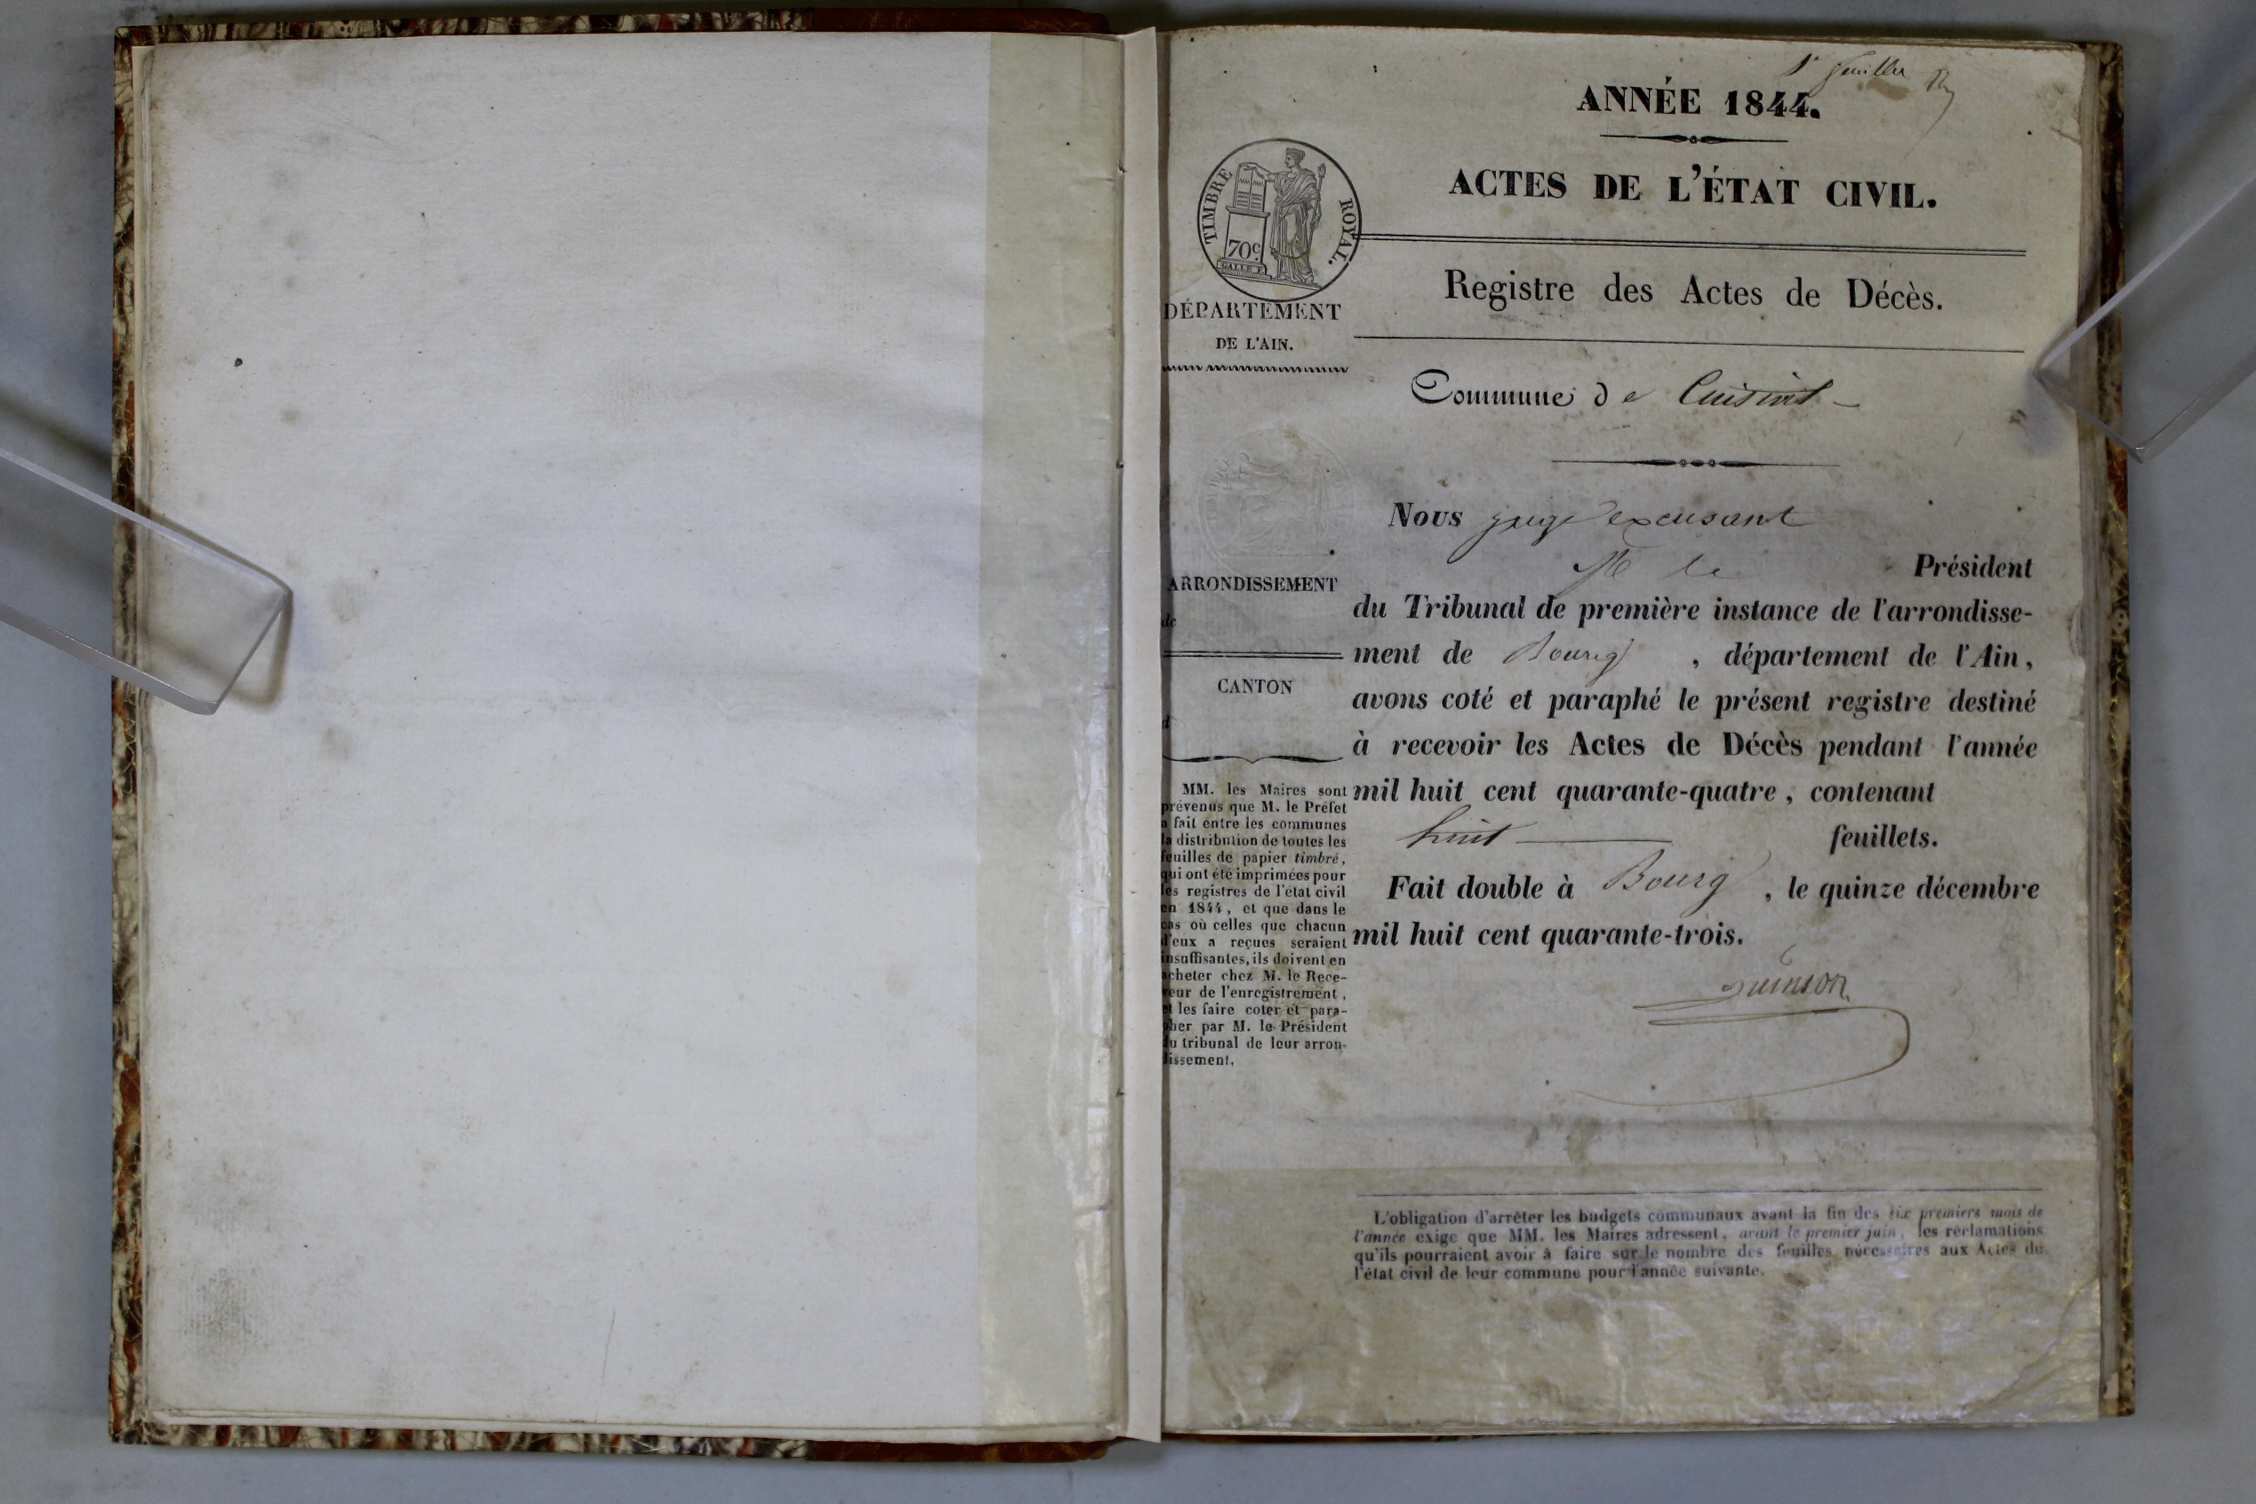 1er feuillet
ANNÉE 1844.
ACTES DE L'ÉTAT CIVIL.
TIMBRE ROYAL.
70c.
Registre des Actes de Décès.
DÉPARTEMENT
DE L'AIN.
Commune de Cuisiat
ARRONDISSEMENT
de
CANTON
d
MM. les Maires sont
prévenus que M. le Préfet
a fait entre les communes
la distribution de toutes les
feuilles de papier timbré,
qui ont été imprimées pour
les registres de l'état civil
en 1844, et que dans le
cas où celles que chacun
d'eux a reçues seraient
insuffisantes, ils doivent en
acheter chez M. le Rece-
veur de l'enregistrement,
et les faire coter et para-
pher par M. le Président
du tribunal de leur arron-
dissement.
Nous juge excusant
M le Président
du Tribunal de première instance de l'arrondisse-
ment de Bourg, département de l'Ain,
avons coté et paraphé le présent registre destiné
à recevoir les Actes de Décès pendant l'année
mil huit cent quarante-quatre, contenant
huit feuillets.
Fait double à Bourg, le quinze décembre
mil huit cent quarante-trois.
L'obligation d'arrêter les budgets communaux avant la fin des six premiers mois de
l'année exige que MM. les Maires adressent, avant le premier juin, les réclamations
qu'ils pourraient avoir à faire sur le nombre des feuilles nécessaires aux Actes de
l'état civil de leur commune pour l'année suivante.